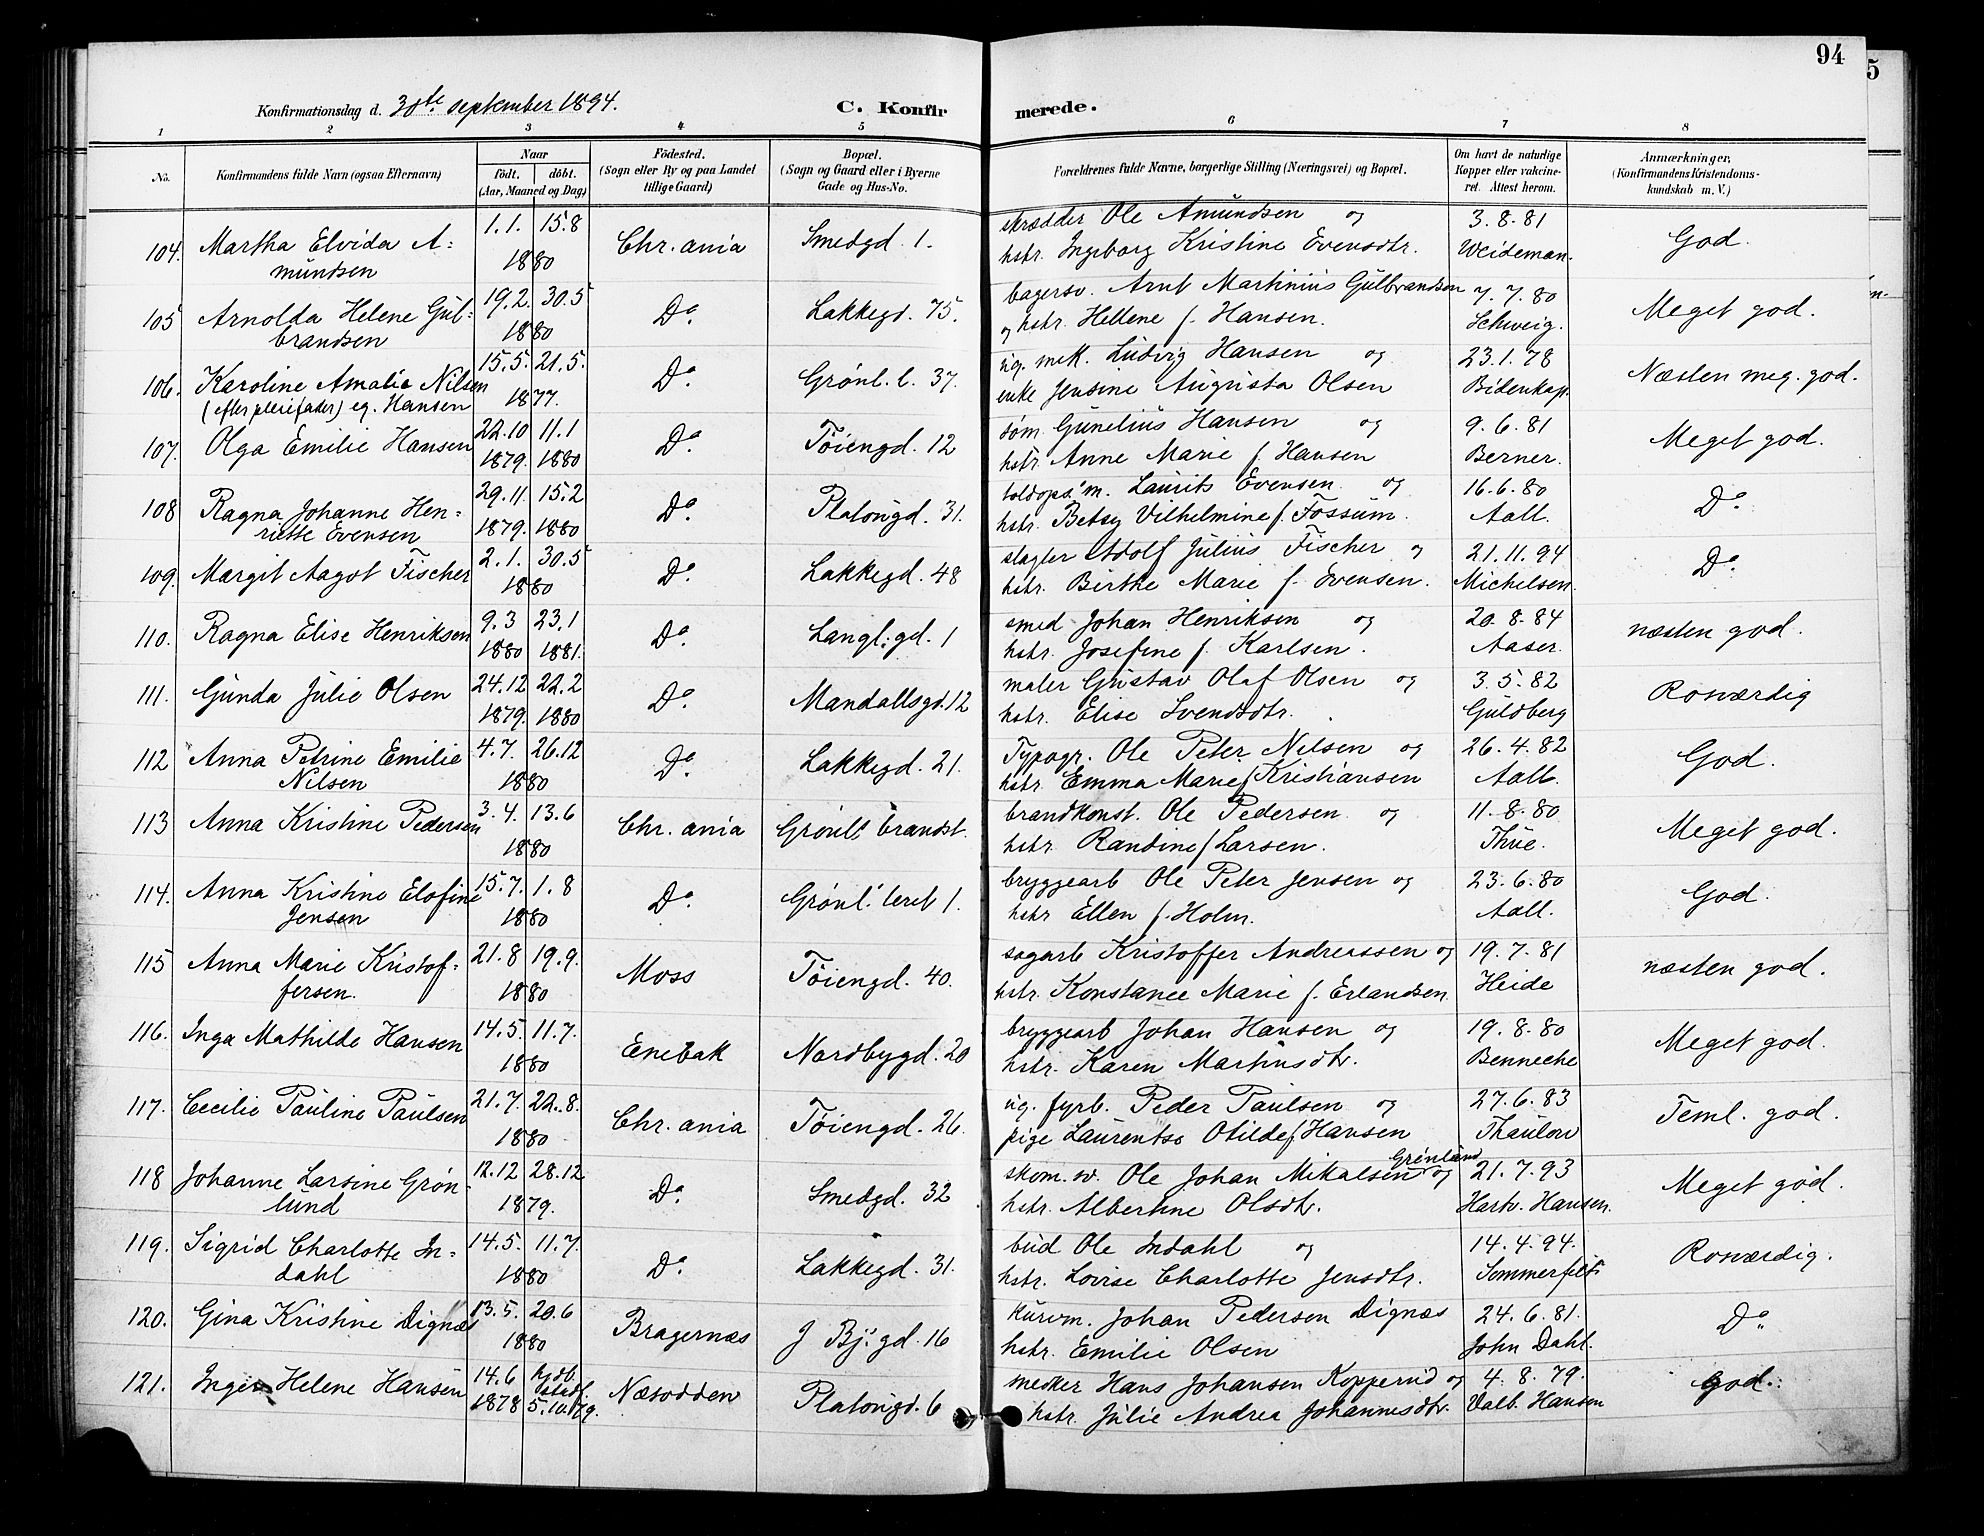 94
5
Konfirmationsdag d. 30te september 1894.
C. Konfirmerede.
1 2 3 4 5 6 7 8
No. Konfirmandens fulde Navn (ogsaa Efternavn) Naar Födt. döbt. (Aar, Maaned og Dag) Födested. (Sogn eller By og paa Landet tillige Gaard) Bopæl. (Sogn og Gaard eller i Byerne Gade og Hus-No. Forældrenes fulde Navne, borgerlige Stilling (Næringsvei) og Bopæl. Om havt de naturlige Kopper eller vakcineret. Attest herom. Anmærkninger, (Konfirmandens Kristendomskundskab m. V.)
104. Martha Elvida A= 1.1. 15.8 Chr.ania Smedgd. 1. skrædder Ole Amundsen og 3.8.81 God.
mundsen 1880 hstr. Ingeborg Kristine Evensdtr. Weideman.
105 Arnolda Helene Gul- 19.2. 30.5 Do. Lakkegd. 75. bagersv. Arnt Martinius Gulbrandsen 7.7.80 Meget god.
brandsen 1880 og hstr. Hellene f. Hansen. Schweig.
106. Karoline Amalie Nilsen 15.5. 21.5. Do. Grønl. l. 37. ug. mek. Ludvig Hansen og 23.1.78 Næsten meg. god.
(efter pleiefader) eg. Hansen 1877. enke Jensine Augusta Olsen Bidenkap.
107. Olga Emilie Hansen 22.10 11.1 Do Töiengd. 12 søm. Gunelius Hansen og 9.6.81 Meget god.
1879. 1880 hstr. Anne Marie f. Hansen Berner.
108 Ragna Johanne Hen= 29.11. 15.2 Do. Platougd. 31. toldops'm. Laurits Evensen og 16.6.80 Do.
riette Evensen 1879. 1880 hstr. Betsy Vilhelmine f. Fossum. Aall.
109. Margit Aagot Fischer 2.1. 30.5 Do. Lakkegd. 48 slagter Adolf Julius Fischer og 21.11.94 Do.
1880 hstr. Birthe Marie f. Evensen. Michelsen.
110. Ragna Elise Henriksen 9.3 23.1 Do Langl.gd. 1 smed Johan Henriksen og 20.8.84 næsten god.
1880 1881. hstr. Josefine f. Karlsen. Aaser.
111. Gunda Julie Olsen 24.12 22.2 Do. Mandallsgd. 12 maler Gustav Olaf Olsen og 3.5.82 Rosværdig
1879. 1880 hstr. Elise Svendsdtr. Guldberg
112 Anna Petrine Emilie 4.7. 26.12 Do. Lakkegd. 21. Typogr. Ole Peter Nilsen og 26.4.82 God.
Nilsen 1880 hstr. Emma Marie f. Kristiansen Aall.
113 Anna Kristine Pedersen 3.4. 13.6 Chr.ania Grønlt brandst. brandkonst. Ole Pedersen og 11.8.80 Meget god.
1880 hstr. Randine f. Larsen. Thue.
114. Anna Kristine Elofine 15.7. 1.8 Do. Grønl. leret 1. bryggearb Ole Peter Jensen og 23.6.80 God.
Jensen 1880 hstr Ellen f. Holm. Aall.
115 Anna Marie Kristof- 21.8 19.9. Moss Töiengd. 40. sagarb Kristoffer Andreassen og 19.7.81 næsten god.
fersen. 1880 hstr. Konstance Marie f. Erlandsen Heide
116. Inga Mathilde Hansen 14.5. 11.7. Enebak Nordbygd. 20 bryggearb Johan Hansen og 19.8.80 Meget god.
1880 hstr. Karen Martinusdtr. Benneche
117. Cecilie Pauline Paulsen 21.7. 22.8. Chr.ania Töiengd. 26. ug. fyrb. Peder Paulsen og 27.6.83 Teml. god.
1880 pige Laurentse Otilde f Hansen Thaulow
118 Johanne Larsine Grøn- 12.12 28.12 Do. Smedgd. 32 skom.sv. Ole Johan Mikalsen Grønlund og 21.7.93 Meget god.
lund 1879. hstr. Albertine Olsdtr. Hartv. Hansen.
119. Sigrid Charlotte In= 14.5. 11.7. Do. Lakkegd. 31. bud Ole Indahl og 14.4.94. Rosværdig.
dahl 1880 hstr. Lovise Charlotte Jensdtr. Sommerfelt
120. Gina Kristine Dignæs 13.5. 20.6 Bragernæs J Bj. gd. 16 kurvm. Johan Pedersen Dignæs 24.6.81. Do
1880 hstr. Emilie Olsen John Dahl.
121. Inger Helene Hansen 14.6 hjdb. stadf. Næsodden Platougd. 6 snedker Hans Johansen Kopperud og 4.8.79. god.
1878 5.10.79. hstr. Julie Andrea Johannesdtr. Valb. Hansen